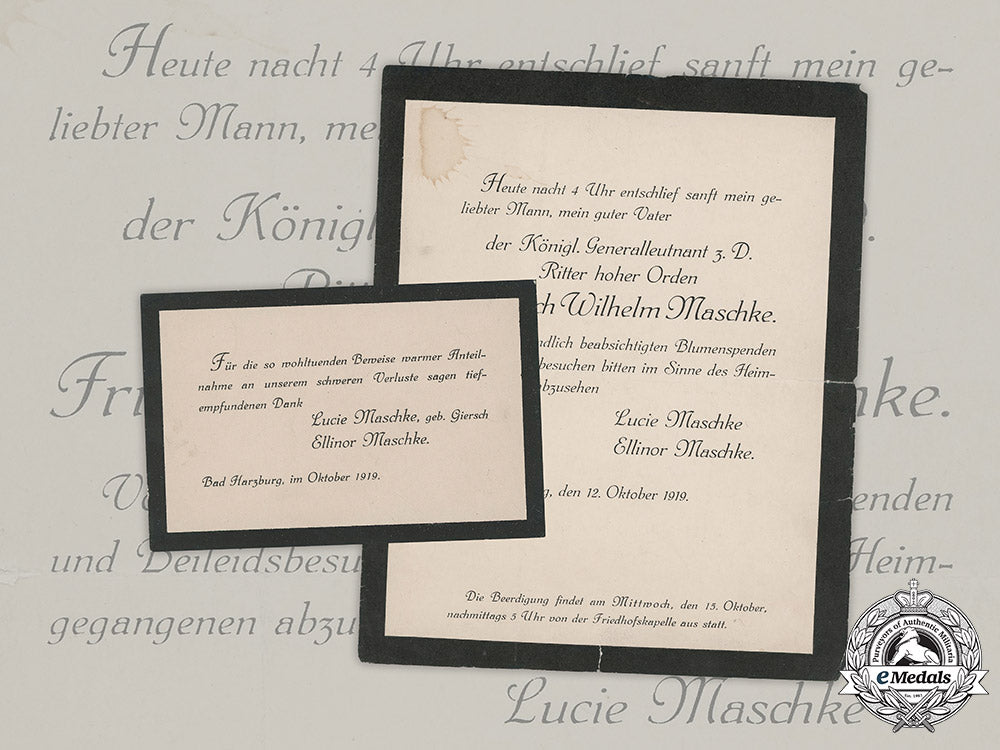 Heute nacht 4 Uhr entschlief sanft mein ge-
liebter Mann, me
der Königl
Fri
hke.
enden
und Beileidsbesu
Heim-
gegangenen abzu
Lucie Maschke
Heute nacht 4 Uhr entschlief sanft mein ge-
liebter Mann, mein guter Vater
der Königl. Generalleutnant z. D.
Ritter hoher Orden
ch Wilhelm Maschke.
ndlich beabsichtigten Blumenspenden
besuchen bitten im Sinne des Heim-
abzusehen
Lucie Maschke
Ellinor Maschke.
g, den 12. Oktober 1919.
Die Beerdigung findet am Mittwoch, den 15. Oktober,
nachmittags 5 Uhr von der Friedhofskapelle aus statt.
Für die so wohltuenden Beweise warmer Anteil-
nahme an unserem schweren Verluste sagen tief-
empfundenen Dank
Lucie Maschke, geb. Giersch
Ellinor Maschke.
Bad Harzburg, im Oktober 1919.
Purveyors of Authentic Militaria
eMedals